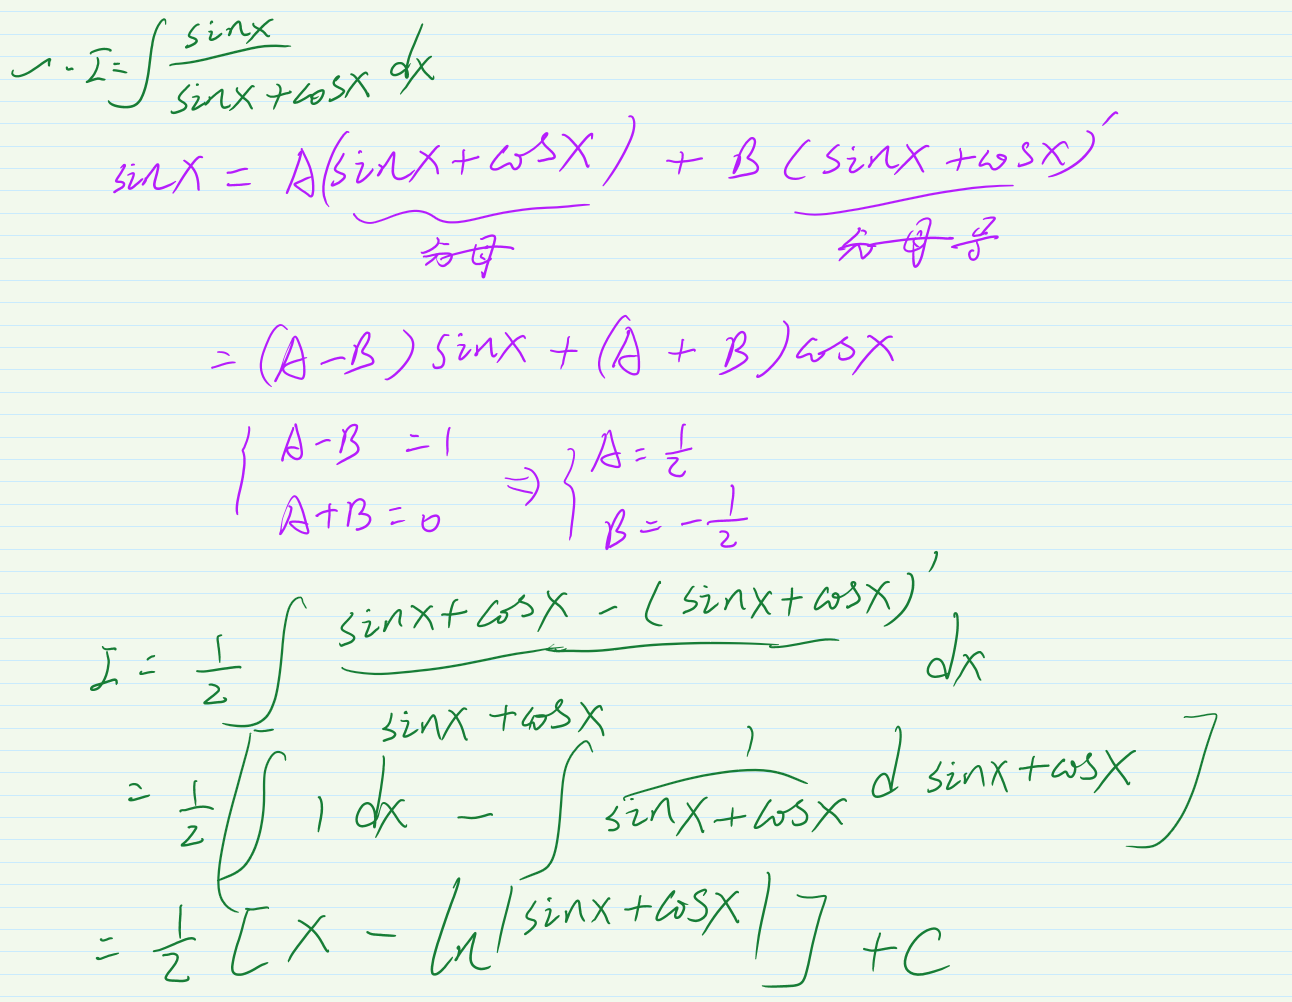 一. I = ∫ sinx/(sinx+cosx) dx
sinx = A(sinx+cosx) + B(sinx+cosx)′
分母 分母导
= (A-B)sinx + (A+B)cosx
{ A-B = 1 ⇒ { A = 1/2
A+B = 0 B = -1/2
I = 1/2 ∫ (sinx+cosx - (sinx+cosx)′)/(sinx+cosx) dx
= 1/2 [∫ 1 dx - ∫ 1/(sinx+cosx) d sinx+cosx]
= 1/2 [x - ln|sinx+cosx|] + C